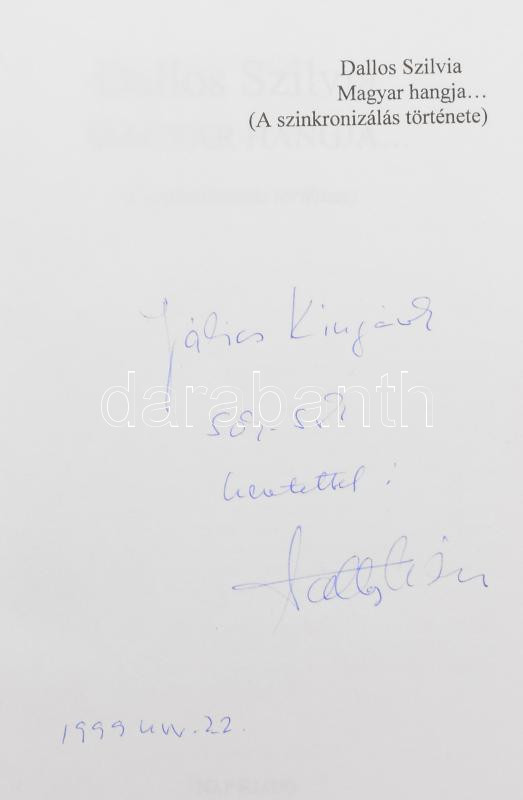 Dallos Szilvia
Magyar hangja...
(A szinkronizálás története)
Jálics Kingának
sok-sok
szeretettel:
darabanth
1999 nov. 22.